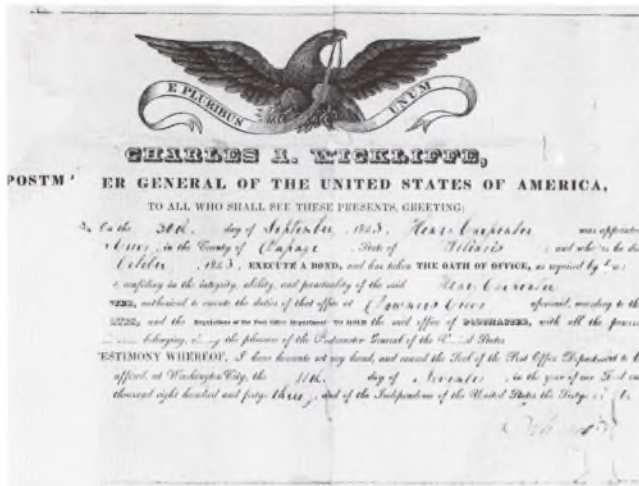 E PLURIBUS UNUM
CHARLES A. WICKLIFFE,
POSTM ER GENERAL OF THE UNITED STATES OF AMERICA,
TO ALL WHO SHALL SEE THESE PRESENTS, GREETING:
On the day of September, 1843 Henry Carpenter was appointed
in the County of Dupage State of Illinois and
October, 1843, EXECUTE A BOND, and has taken THE OATH OF OFFICE, as required by
confiding in the integrity, ability, and punctuality of the said Henry Carpenter
authorized to execute the duties of that office at Downers Grove aforesaid, according to the
and the Regulations of the Post Office Department: TO HOLD the said office of POSTMASTER, with all the
belonging, during the pleasure of the Postmaster General of the United States
TESTIMONY WHEREOF, I have hereunto set my hand, and caused the Seal of the Post Office Department to
affixed, at Washington City, the day of November, in the year of our Lord
thousand eight hundred and forty three, and of the Independence of the United States the Sixty